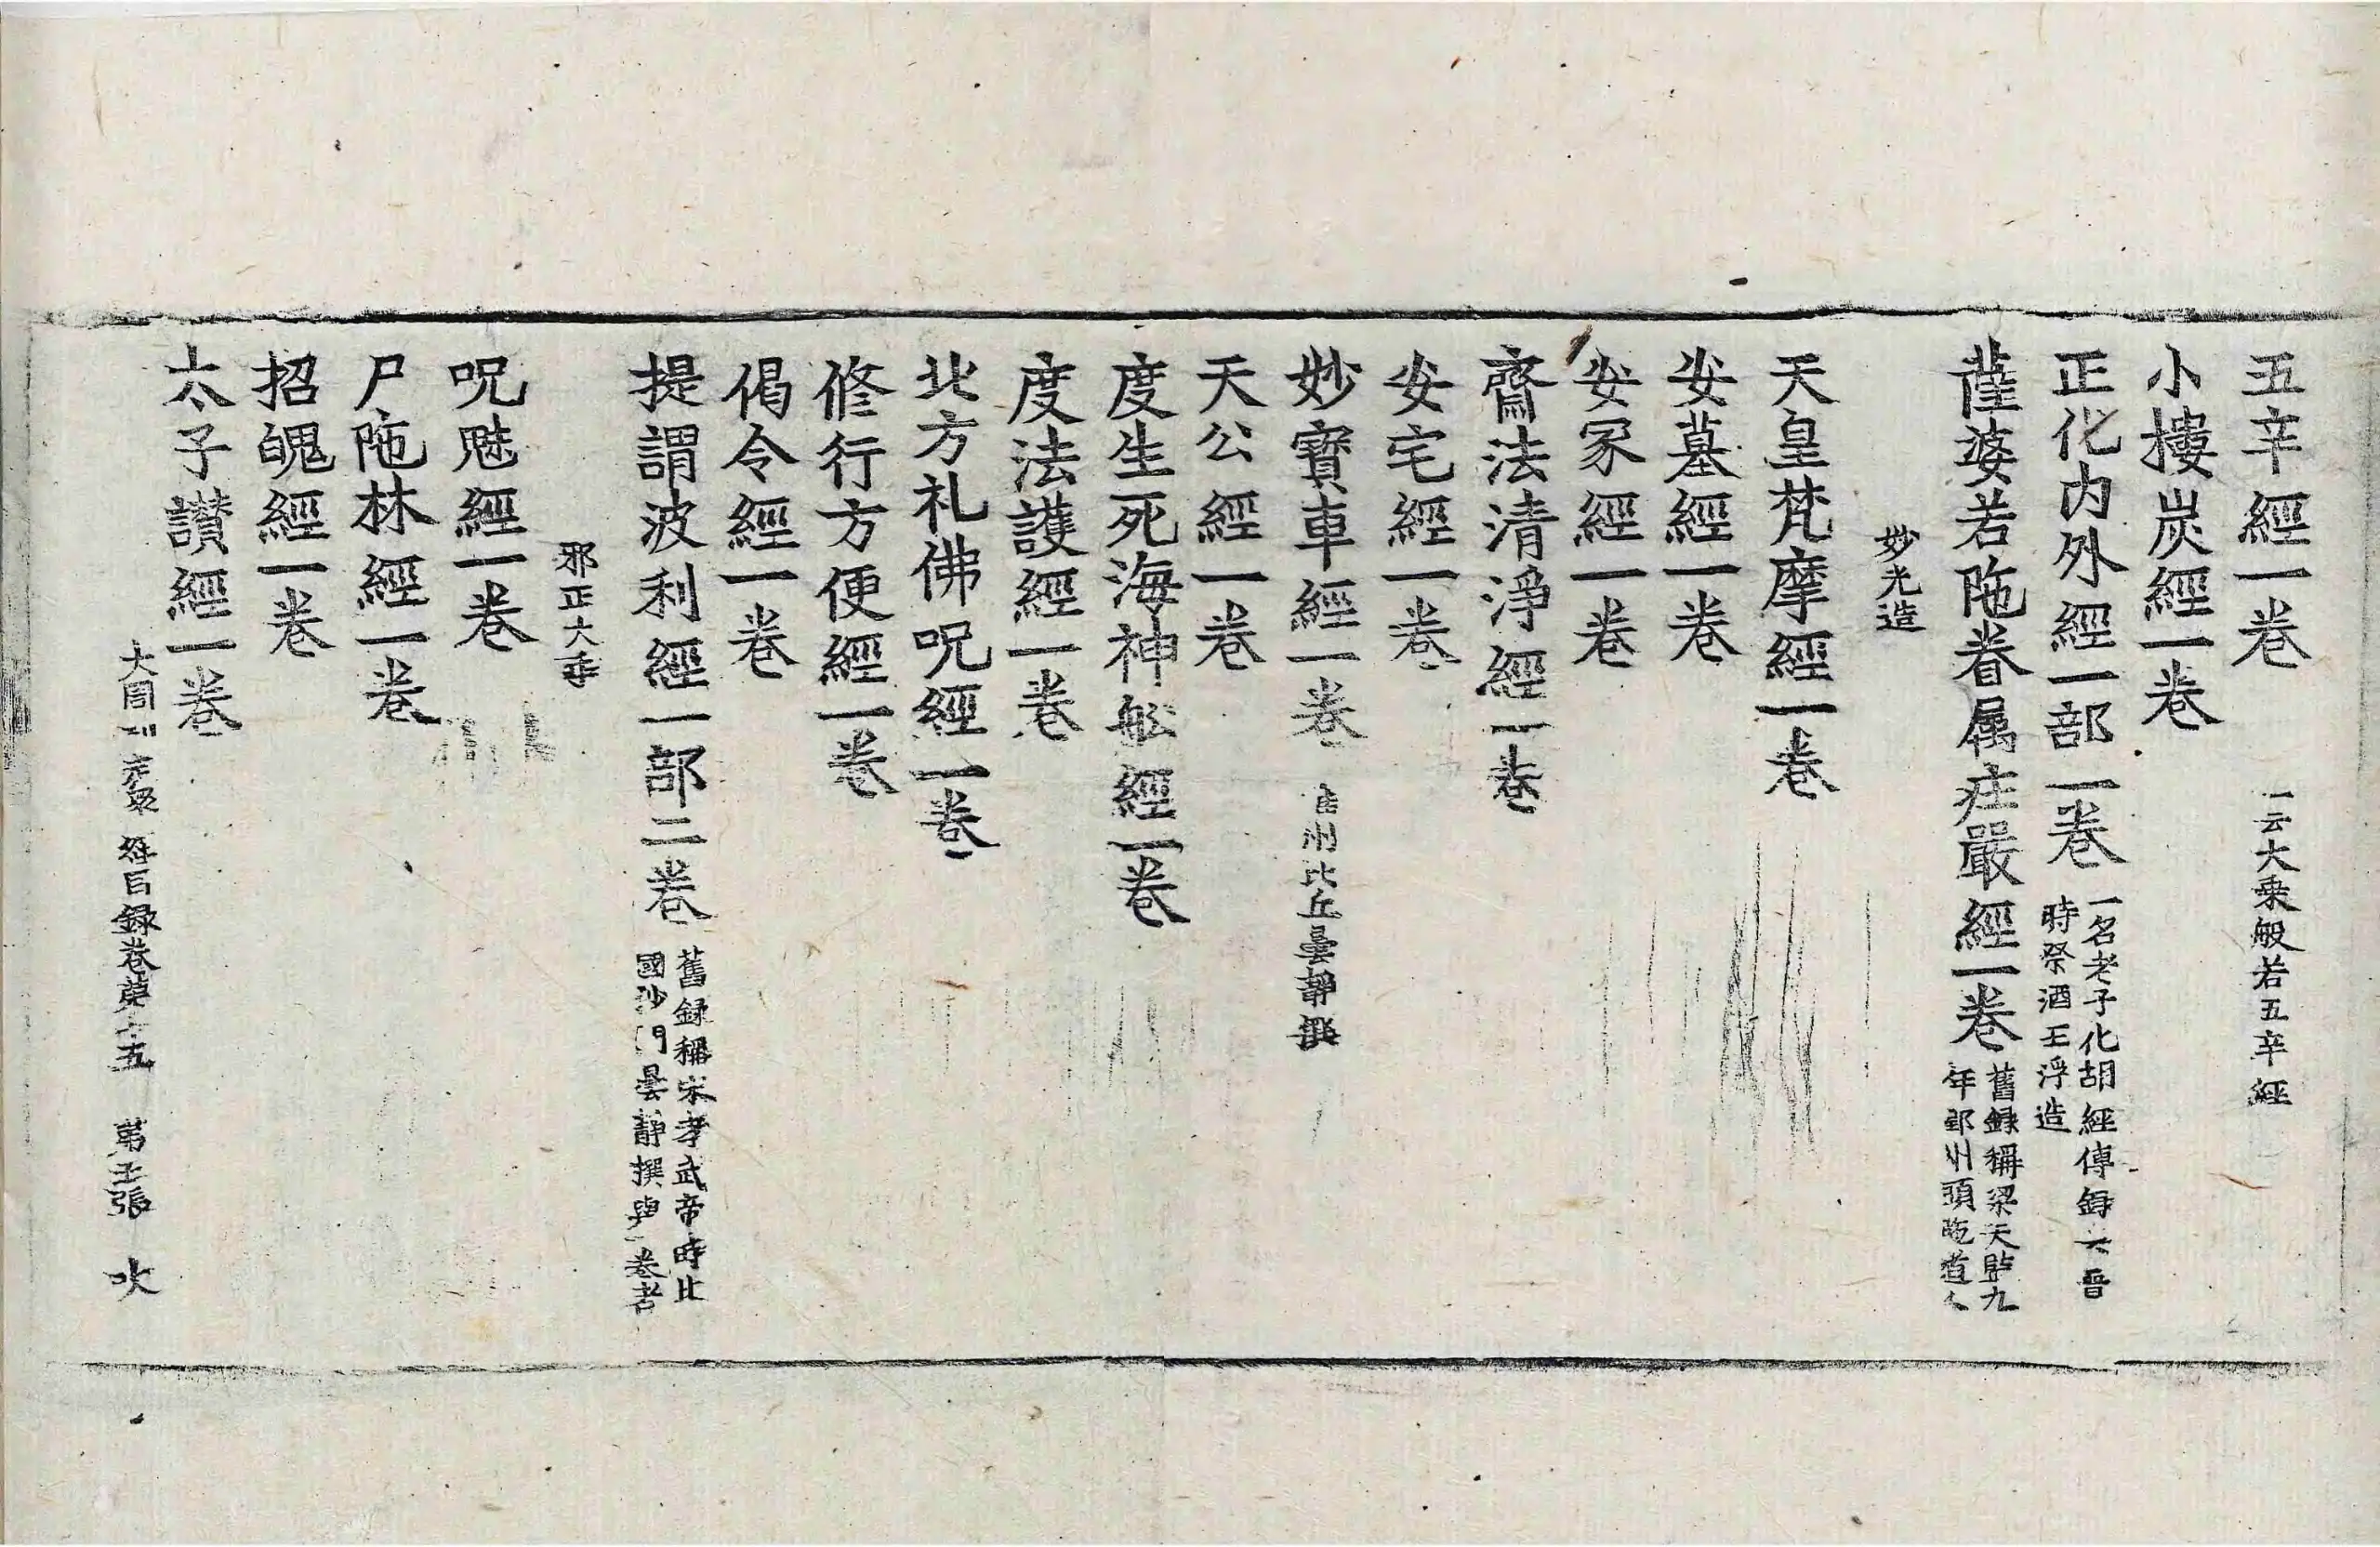 五辛經一卷 一云大乘般若五辛經
小摟炭經一卷
正化內外經一部一卷 一名老子化胡經傳録云晋
時祭酒王浮造
薩婆若陁眷属庄嚴經一卷 舊録稱梁天監九
年郢州頭陁道人
妙光造
天皇梵摩經一卷
安墓經一卷
安冢經一卷
齋法清淨經一卷
安宅經一卷
妙寶車經一卷 州比丘曇靜撰
天公經一卷
度生死海神舩經一卷
度法護經一卷
北方礼佛呪經一卷
修行方便經一卷
偈令經一卷
提謂波利經一部二卷 舊録稱宋孝武帝時比
國沙門曇靜撰與一卷者
邪正大乖
呪魅經一卷
尸陁林經一卷
招魄經一卷
太子讃經一卷
大周刊定衆經目録卷苐十五 苐張 吹